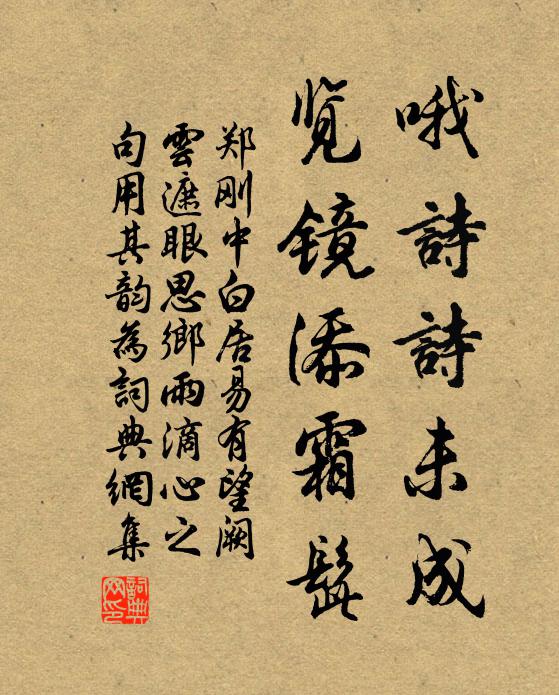 哦詩詩未成
览镜添霜髭
郑刚中白居易有望阙
雲遮眼思鄉雨滴心之
句用其韵為詞典網集
詞典网印